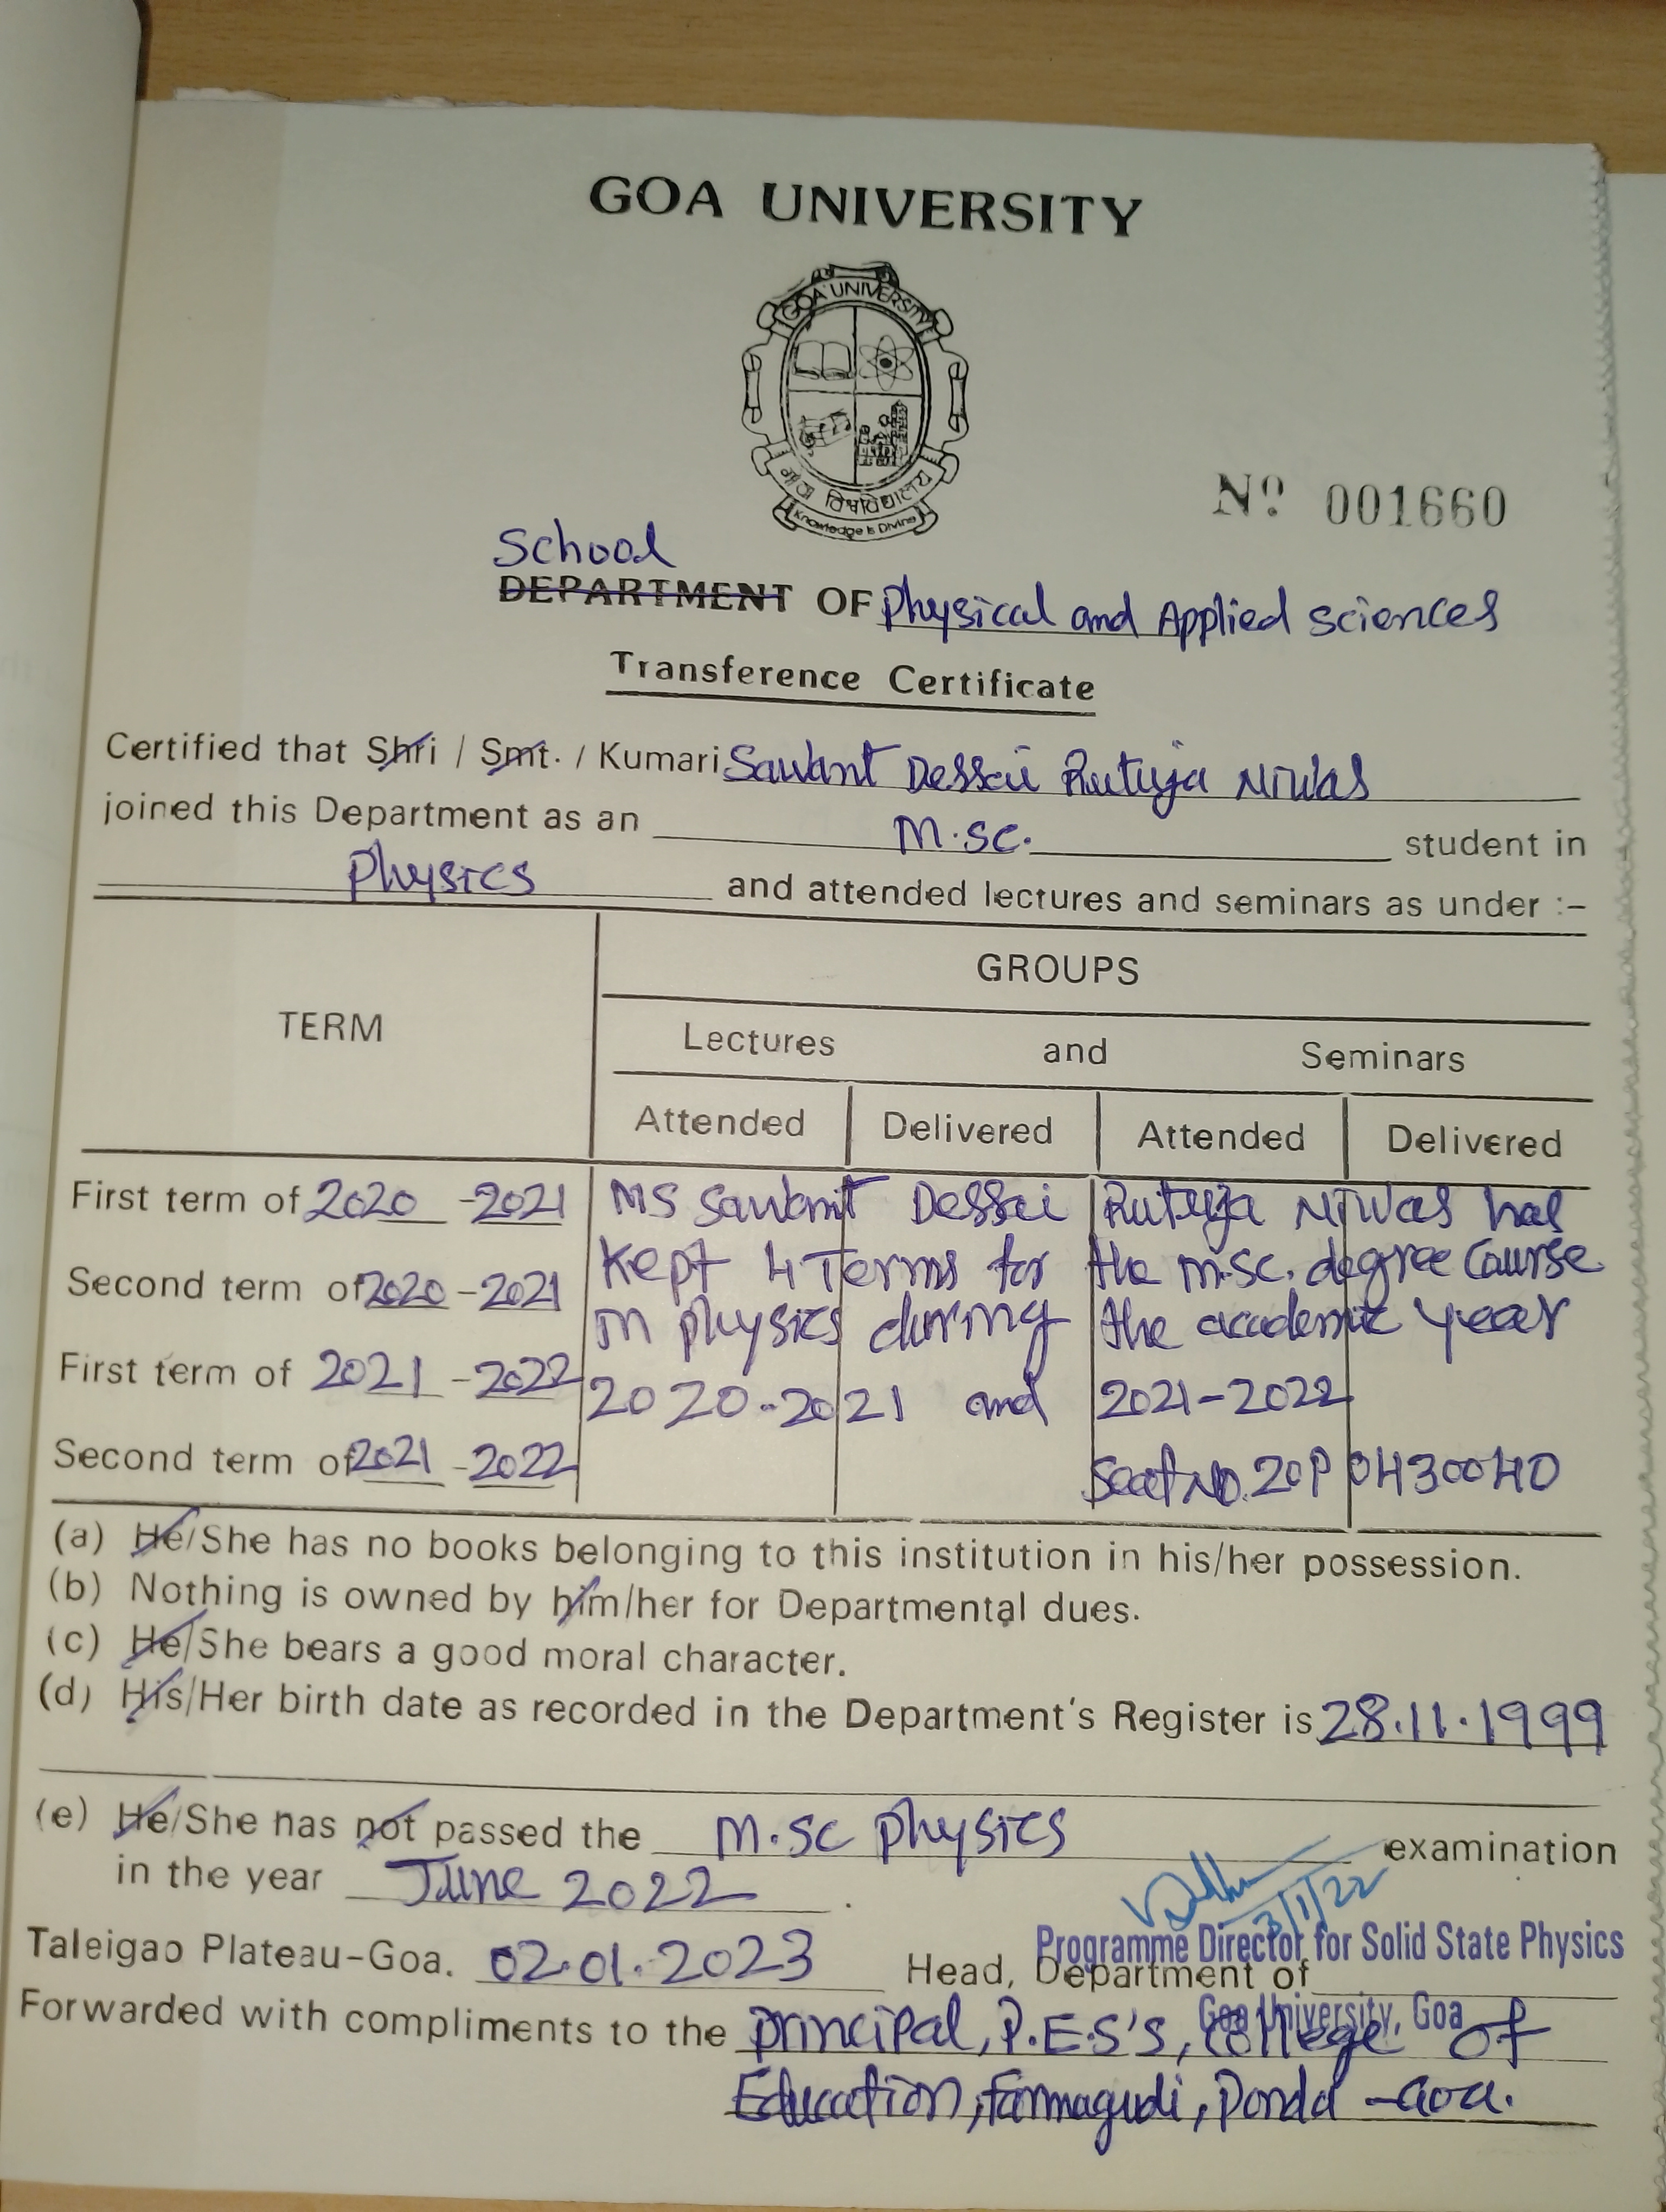 GOA UNIVERSITY
GOA UNIVERSITY
गोंय विश्वविद्यालय
Knowledge is Divine
Nº 001660
School
DEPARTMENT OF Physical and Applied Sciences
Transference Certificate
Certified that Shri / Smt. / Kumari Sawant Dessai Rutuja Niwas
joined this Department as an M.Sc. student in
Physics and attended lectures and seminars as under :-
TERM
GROUPS
Lectures and Seminars
Attended Delivered Attended Delivered
First term of 2020 - 2021 Ms Sawant Dessai Rutuja Niwas has
Second term of 2020 - 2021 Kept 4 Terms for the M.Sc. degree Course
in physics during the academic year
First term of 2021 - 2022 2020-2021 and 2021-2022
Second term of 2021 - 2022 Seat No. 20P0430040
(a) He/She has no books belonging to this institution in his/her possession.
(b) Nothing is owned by him/her for Departmental dues.
(c) He/She bears a good moral character.
(d) His/Her birth date as recorded in the Department's Register is 28.11.1999
(e) He/She has not passed the M.Sc Physics examination
in the year June 2022.
3/1/22
Programme Director for Solid State Physics
Taleigao Plateau-Goa. 02.01.2023 Head, Department of
Goa University, Goa
Forwarded with compliments to the Principal, P.E.S's, College of
Education, Farmagudi, Ponda - Goa.